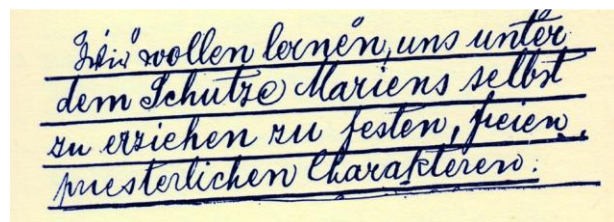 Wir wollen lernen, uns unter
dem Schutze Mariens selbst
zu erziehen zu festen, freien,
priesterlichen Charakteren.